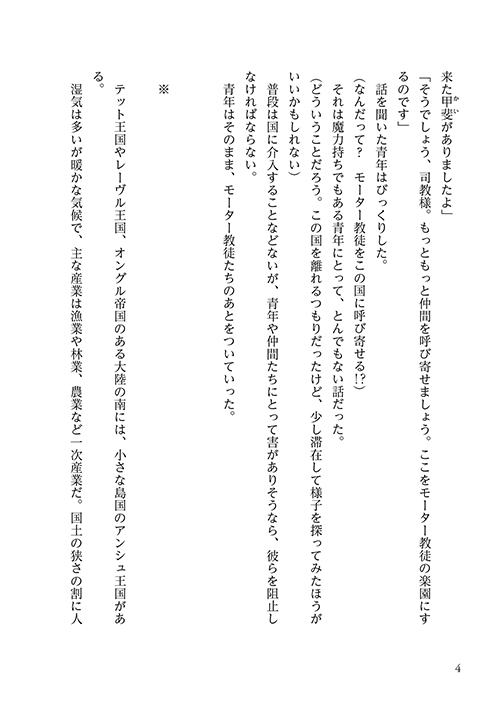 来た甲斐がありましたよ」
「そうでしょう、司教様。もっともっと仲間を呼び寄せましょう。ここをモーター教徒の楽園にす
るのです」
話を聞いた青年はびっくりした。
(なんだって? モーター教徒をこの国に呼び寄せる!?)
それは魔力持ちでもある青年にとって、とんでもない話だった。
(どういうことだろう。この国を離れるつもりだったけど、少し滞在して様子を探ってみたほうが
いいかもしれない)
普段は国に介入することなどないが、青年や仲間たちにとって害がありそうなら、彼らを阻止し
なければならない。
青年はそのまま、モーター教徒たちのあとをついていった。
※
テット王国やレーヴル王国、オングル帝国のある大陸の南には、小さな島国のアンシュ王国があ
る。
湿気は多いが暖かな気候で、主な産業は漁業や林業、農業など一次産業だ。国土の狭さの割に人
4